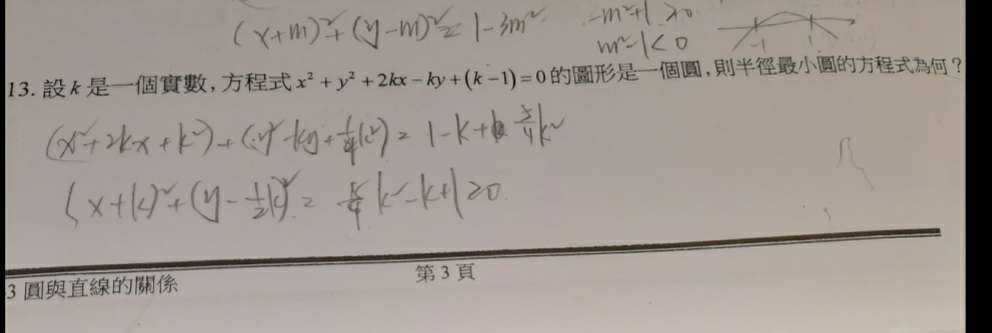 (x+m)²+(y-m)²=1-3m² -m²+1>0
m²-1<0 -1 1
13. 設k是一個實數,方程式x²+y²+2kx-ky+(k-1)=0的圖形是一個圓,則半徑最小圓的方程式為何?
(x²+2kx+k²)+(y²-ky+¼k²)=1-k+ 5/4k²
(x+k)²+(y-½k)²= 5/4k²-k+1>0
3 圓與直線的關係
第3頁